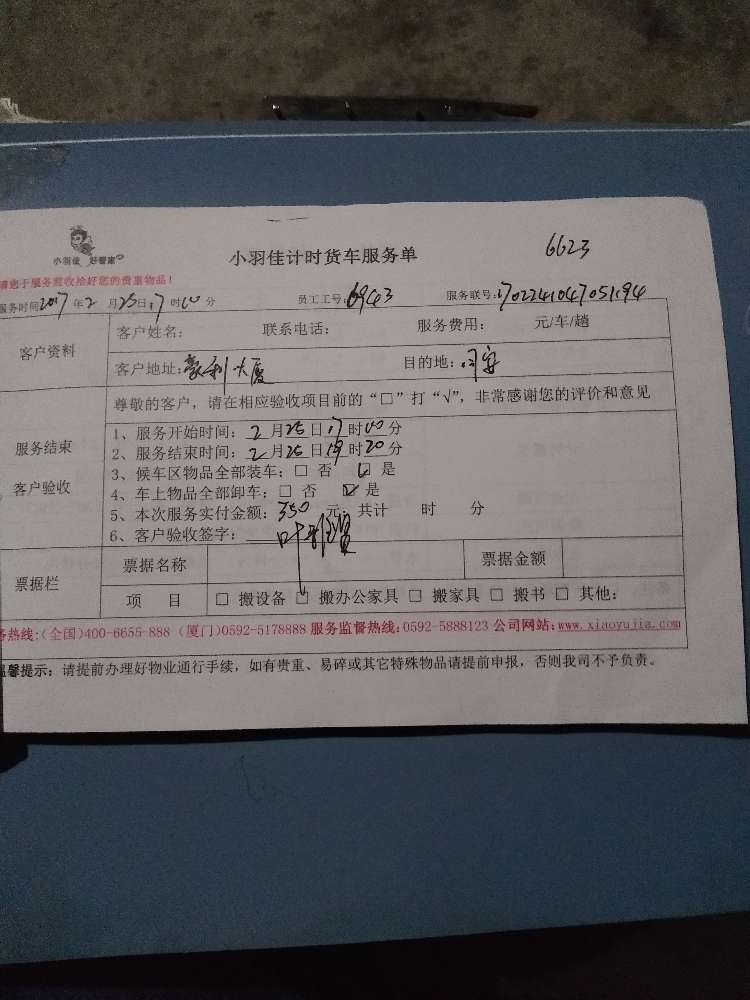 小羽佳 好管家
小羽佳计时货车服务单
6623
请您于服务前收拾好您的贵重物品!
服务时间2017年2月25日17时00分 员工工号:6943 服务联号:1702241047051194
客户资料
客户姓名: 联系电话: 服务费用: 元/车/趟
客户地址:豪利大厦 目的地:同安
服务结束
客户验收
尊敬的客户,请在相应验收项目前的“□”打“√”,非常感谢您的评价和意见
1、服务开始时间:2月25日17时00分
2、服务结束时间:2月25日19时20分
3、候车区物品全部装车:□ 否 ☑ 是
4、车上物品全部卸车:□ 否 ☑ 是
5、本次服务实付金额:350元,共计 时 分
6、客户验收签字:
票据栏
票据名称 票据金额
项 目 □ 搬设备 ☑ 搬办公家具 □ 搬家具 □ 搬书 □ 其他:
务热线:(全国)400-6655-888 (厦门)0592-5178888 服务监督热线:0592-5888123 公司网站:www.xiaoyujia.com
温馨提示:请提前办理好物业通行手续,如有贵重、易碎或其它特殊物品请提前申报,否则我司不予负责。